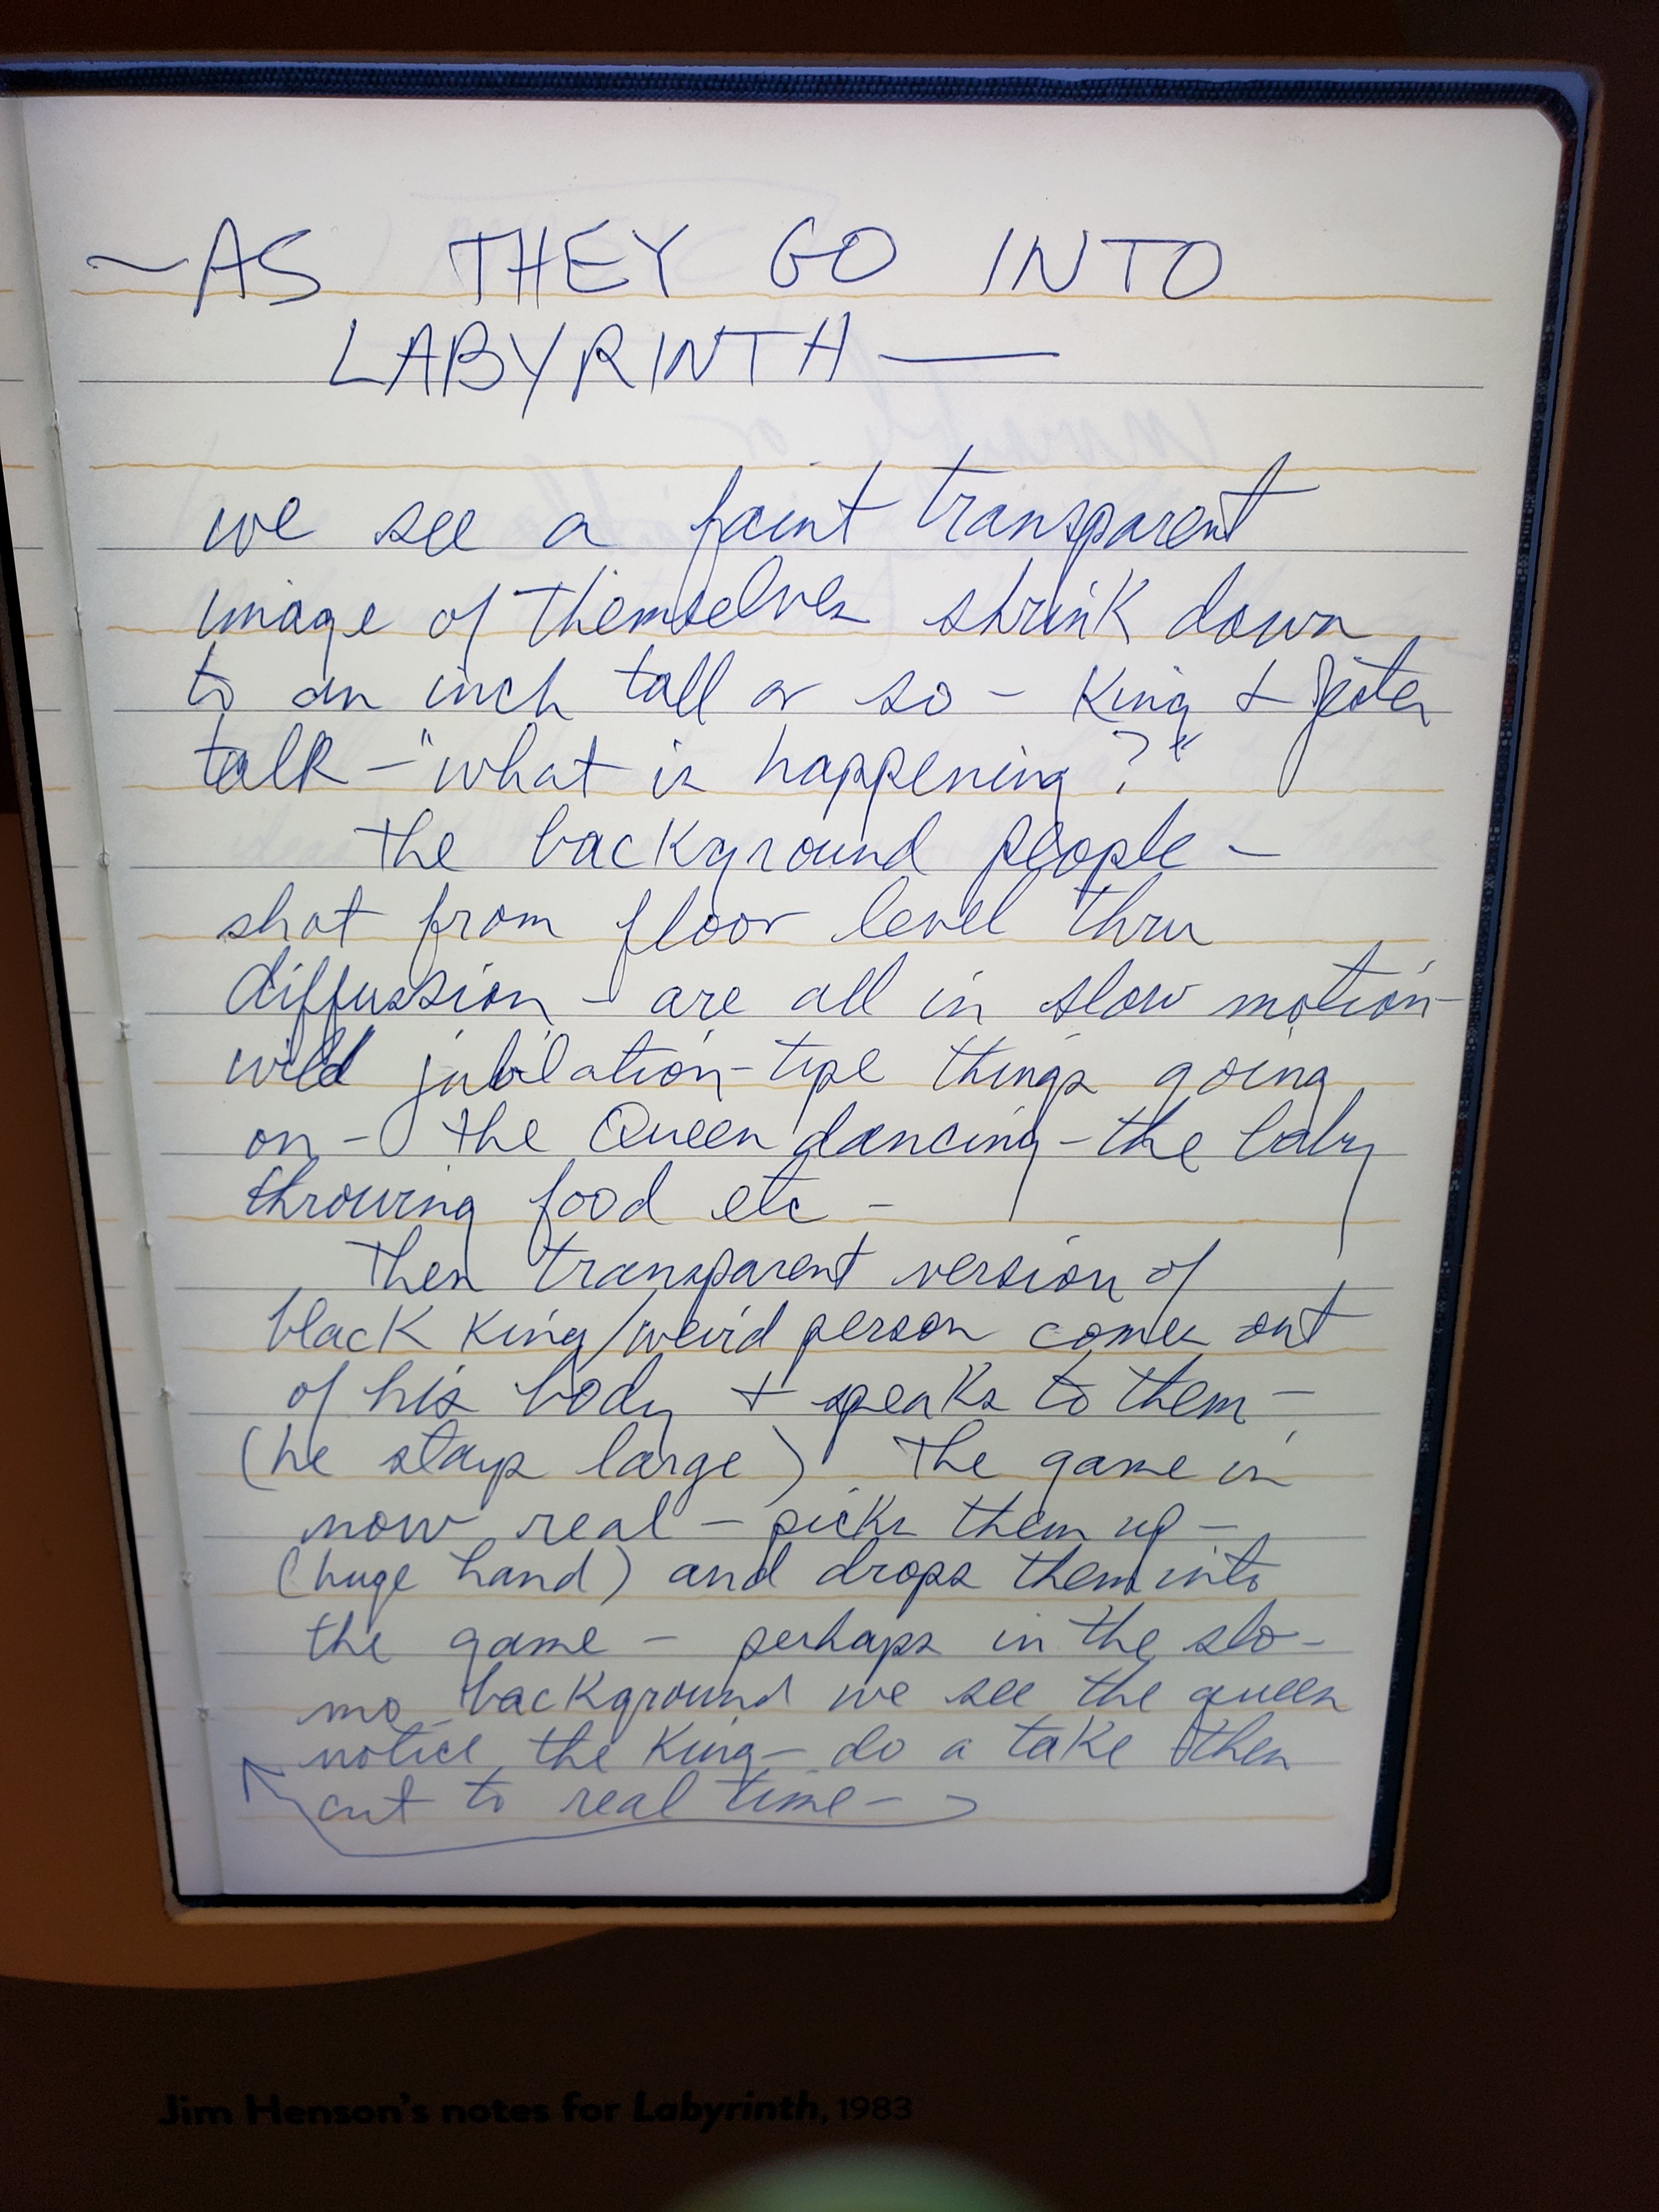 ~AS THEY GO INTO
LABYRINTH —
we see a faint transparent
image of themselves shrink down
to an inch tall or so – King + Jester
talk – "what is happening?"
the background people –
shot from floor level thru
diffussion – are all in slow motion –
wild jubilation-type things going
on – the Queen dancing – the baby
throwing food etc –
Then transparent version of
black King/weird person comes out
of his body + speaks to them –
(he stays large) The game is
now real – picks them up –
(huge hand) and drops them into
the game – perhaps in the slo-
mo background we see the queen
notice the King – do a take then
cut to real time –
Jim Henson's notes for Labyrinth, 1983